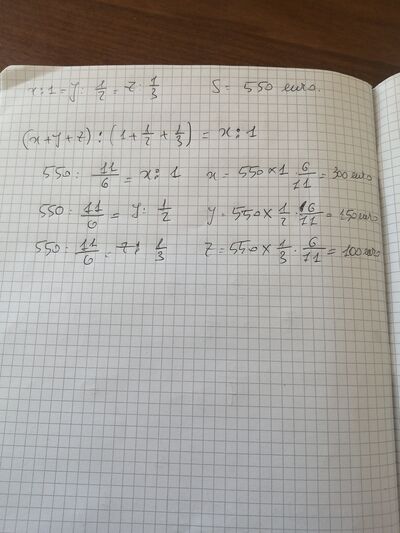 x : 1 = y : 1/2 = z : 1/3 S = 550 euro.
(x+y+z) : (1 + 1/2 + 1/3) = x : 1
550 : 11/6 = x : 1 x = 550 × 1 · 6/11 = 300 euro
550 : 11/6 = y : 1/2 y = 550 × 1/2 · 6/11 = 150 euro
550 : 11/6 = z : 1/3 z = 550 × 1/3 · 6/11 = 100 euro